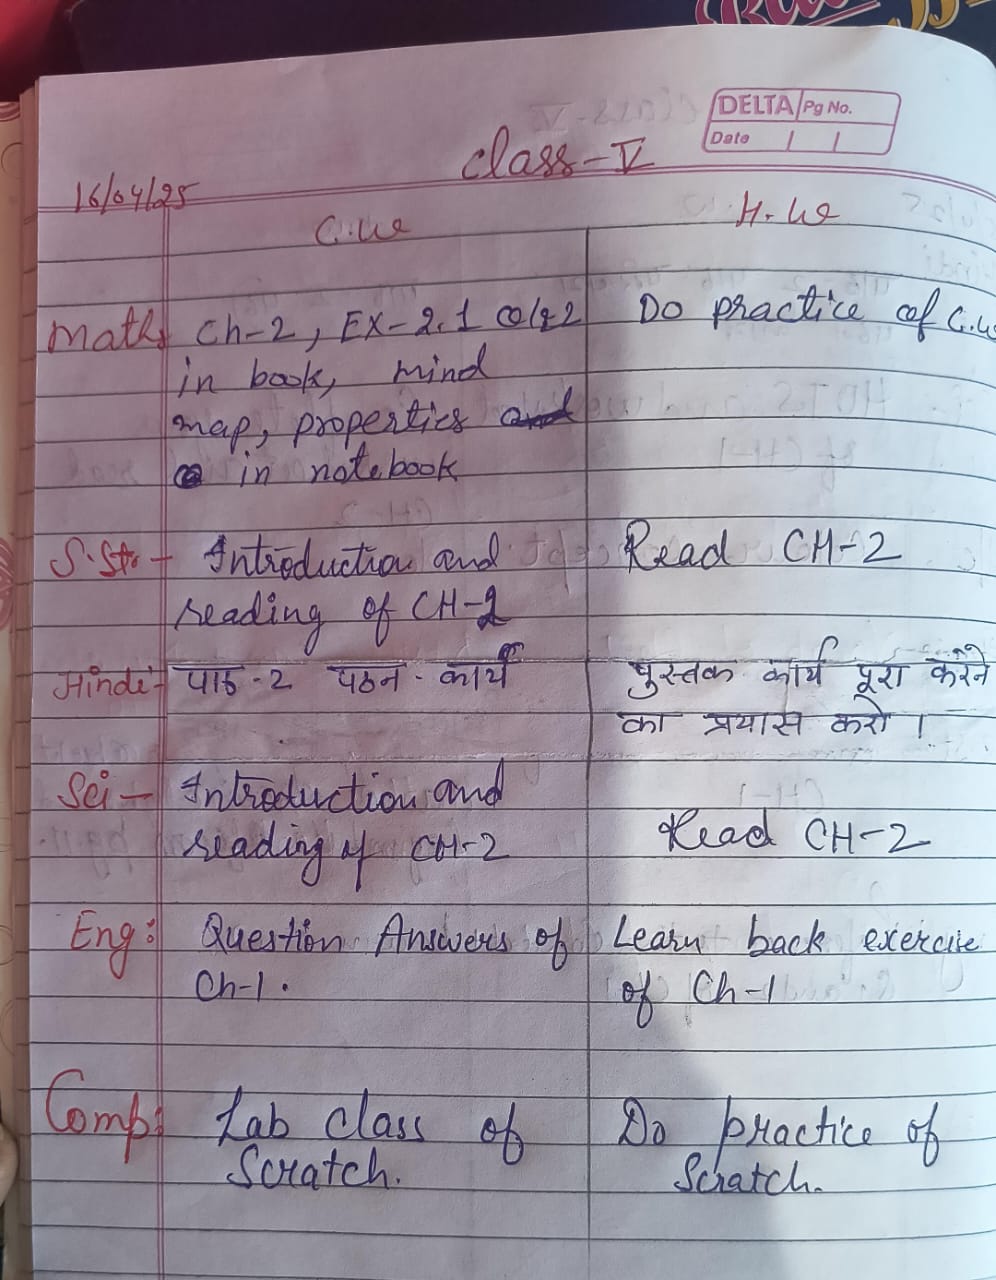 DELTA Pg No.
Date
Class-V
16/04/25
C.W H.W
Maths Ch-2, EX-2.1 Q1&2 Do practice of C.W
in book, mind
map, properties and
in notebook
S.St - Introduction and Read CH-2
reading of CH-2
Hindi - पाठ-2 पठन-कार्य पुस्तक कार्य पूरा करने
का प्रयास करो ।
Sci - Introduction and
reading of CH-2 Read CH-2
Eng: Question Answers of Learn back exercise
Ch-1. of Ch-1
Comp: Lab class of Do practice of
Scratch. Scratch.